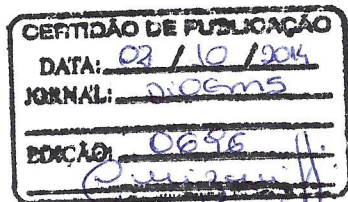 CERTIDÃO DE PUBLICAÇÃO
DATA: 02 / 10 / 2014
JORNAL: DIOGMS
EDIÇÃO: 0696